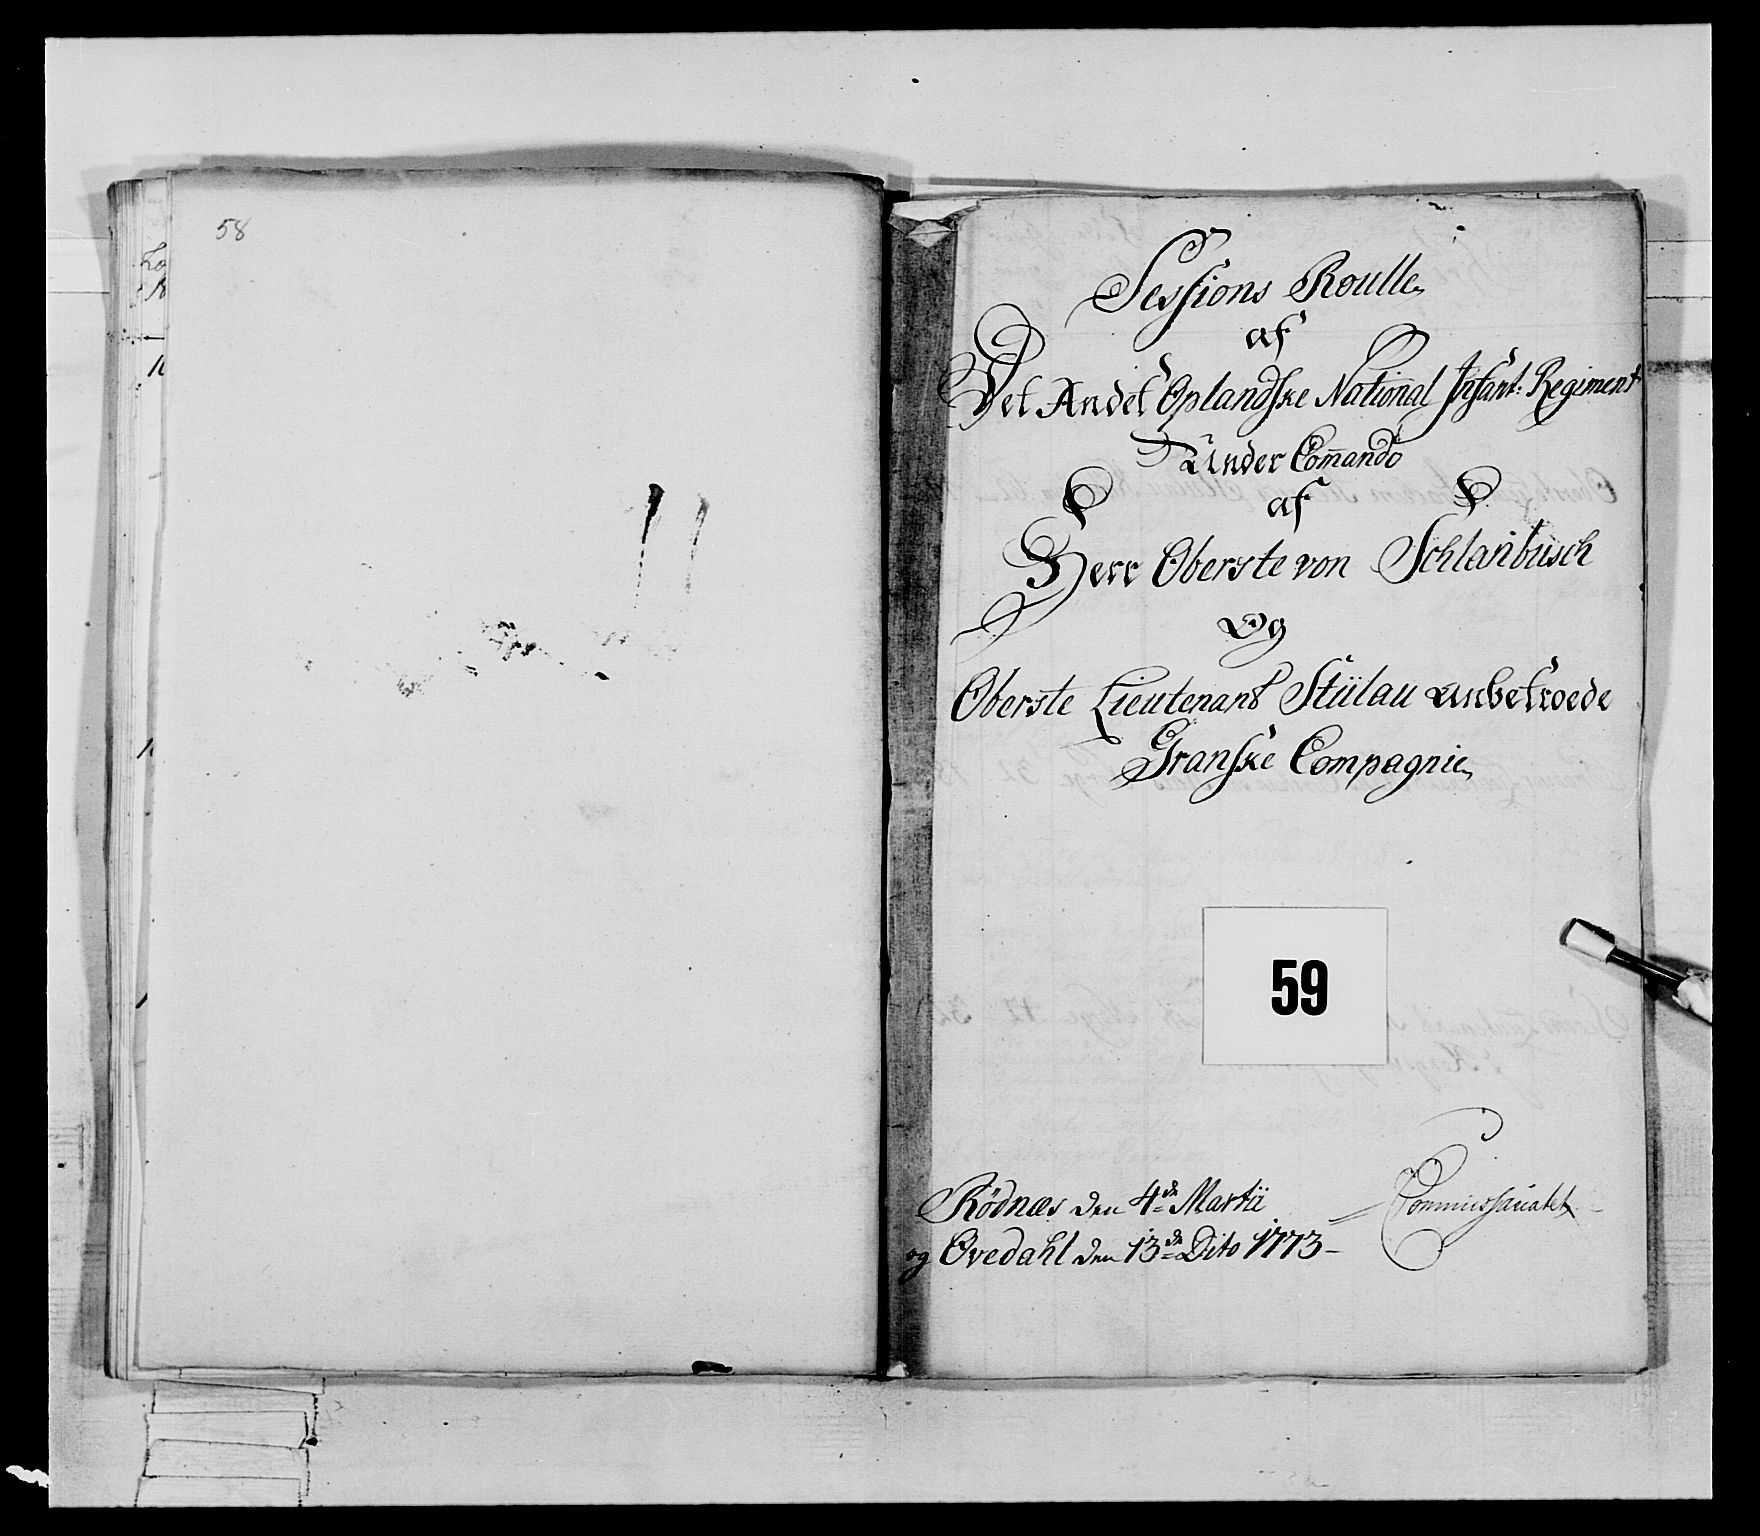 58
Sessions Roulle
af
Det Andet Oplandske National Infant: Regiment
Under Comando
af
Herr Oberste von Schlanbusch
Og
Oberste Lieutenant Stülau anbetroede
Granske Compagnie
59
Rödnæs den 4de Martii
Commissariatet
og Ovedahl den 13de Dito 1773